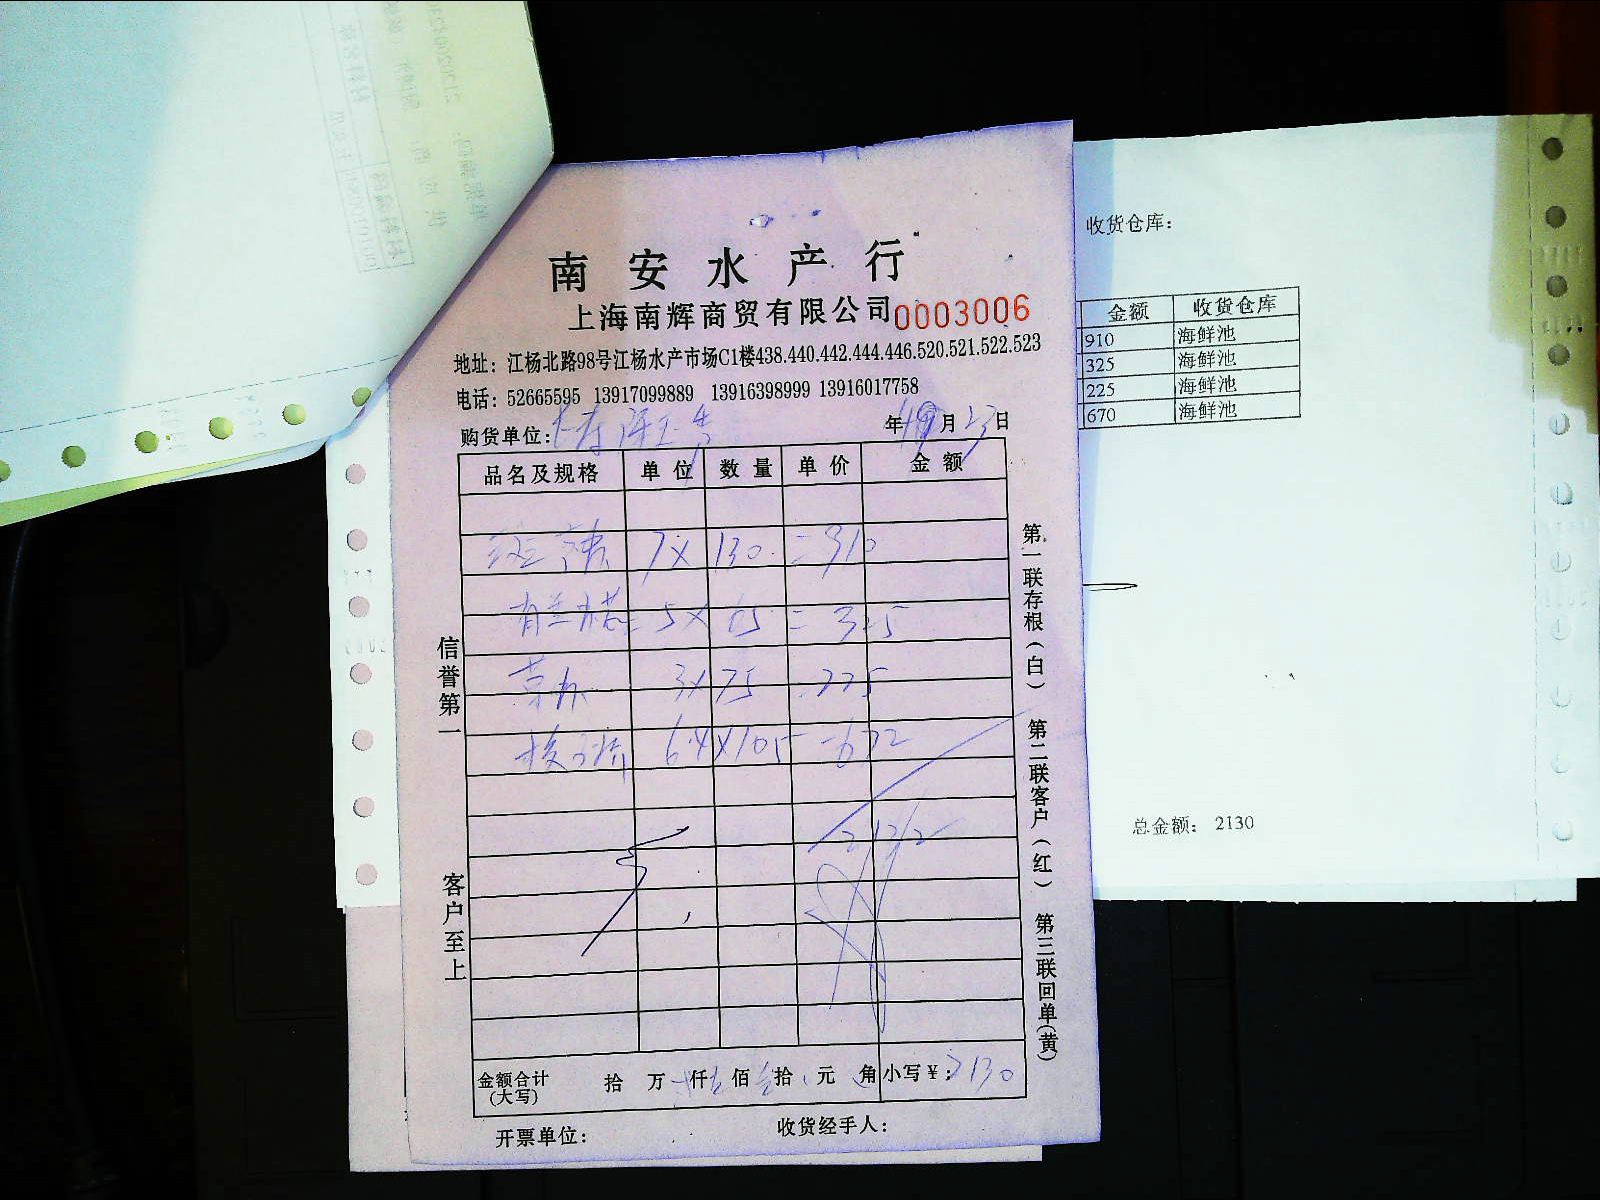 南安水产行
上海南辉商贸有限公司 0003006
地址：江杨北路98号江杨水产市场C1楼438.440.442.444.446.520.521.522.523
电话：52665595 13917099889 13916398999 13916017758
购货单位： 年 月 23 日
品名及规格 单位 数量 单价 金额
7 × 130 = 910
5 × 65 = 325
3 × 75 = 225
6.4 × 105 = 672
2132
金额合计 拾 万 仟 佰 拾 元 角 小写￥：2130
(大写)
开票单位： 收货经手人：
信誉第一
客户至上
第一联存根(白) 第二联客户(红) 第三联回单(黄)
收货仓库：
金额 收货仓库
910 海鲜池
325 海鲜池
225 海鲜池
670 海鲜池
总金额： 2130